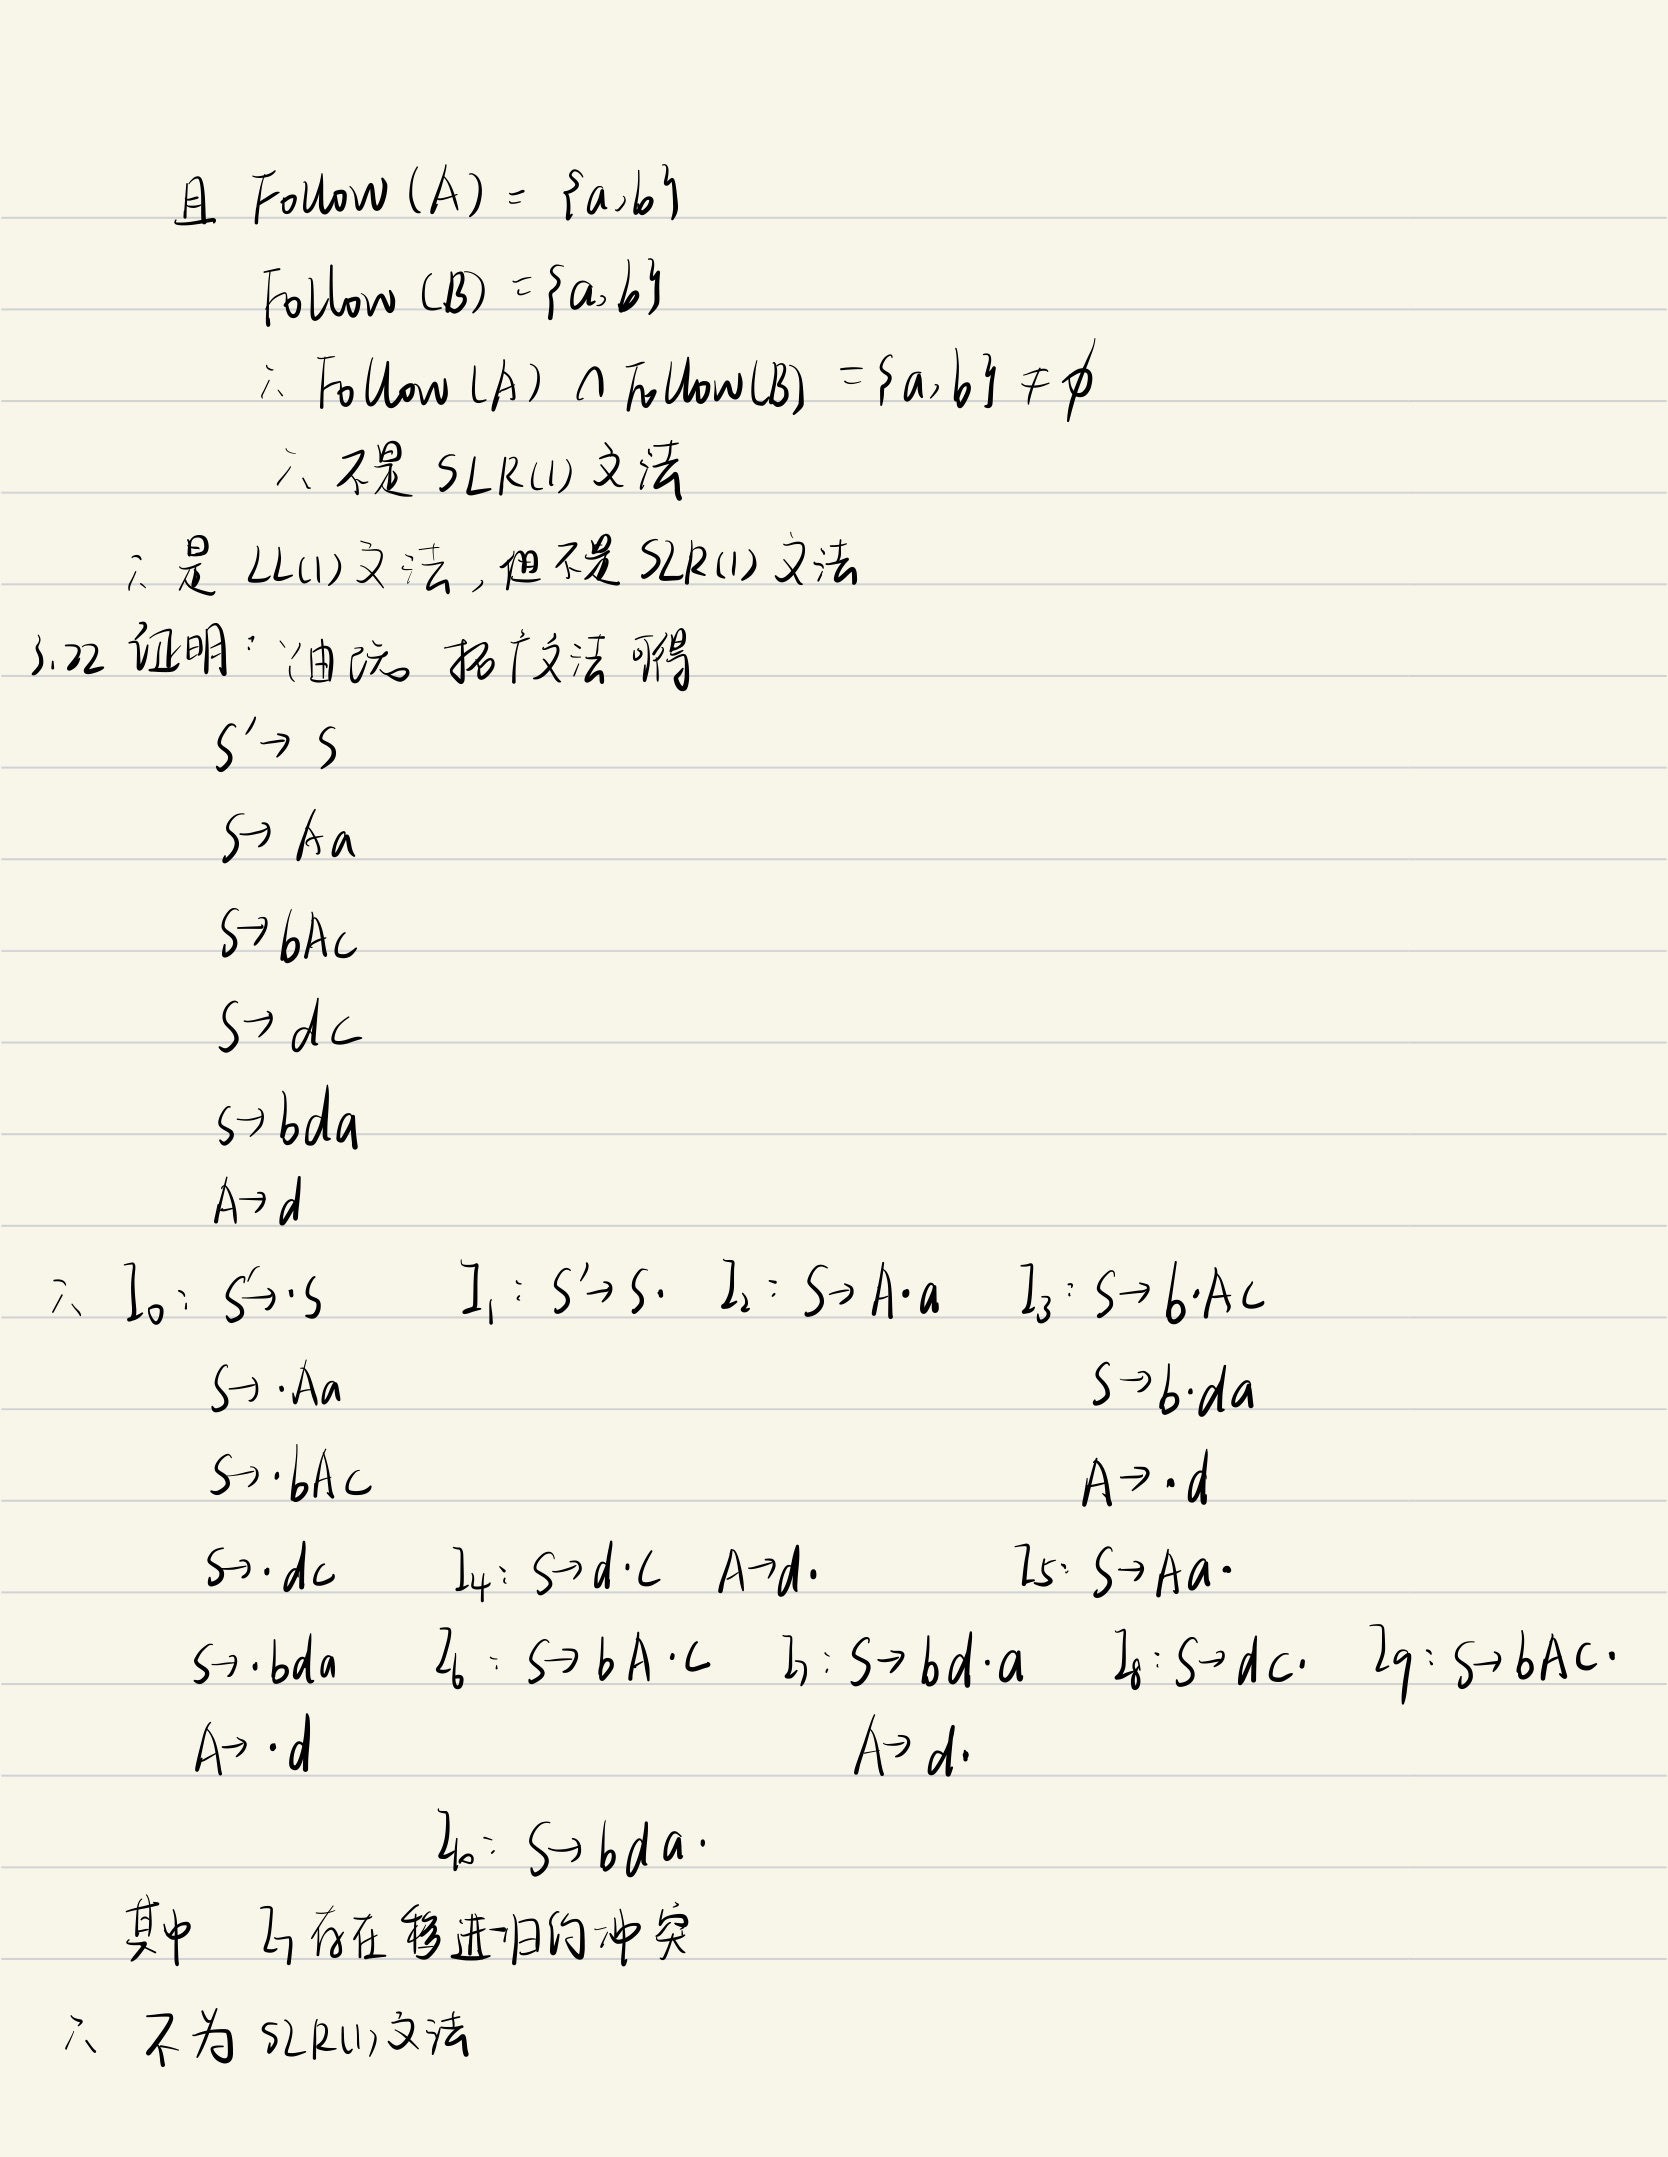 且 Follow(A) = {a,b}
Follow(B) = {a,b}
∴ Follow(A) ∩ Follow(B) = {a,b} ≠ ϕ
∴ 不是 SLR(1) 文法
∴ 是 LL(1) 文法, 但不是 SLR(1) 文法
3.22 证明: 拓广文法 可得
S'→ S
S→ Aa
S→ bAc
S→ dc
S→ bda
A→ d
∴ I₀: S'→·S I₁: S'→S· I₂: S→A·a I₃: S→b·Ac
S→·Aa S→b·da
S→·bAc A→·d
S→·dc I₄: S→d·c A→d· I₅: S→Aa·
S→·bda I₆: S→bA·c I₇: S→bd·a I₈: S→dc· I₉: S→bAc·
A→·d A→d·
I₁₀: S→bda·
其中 I₇ 存在移进-归约冲突
∴ 不为 SLR(1) 文法